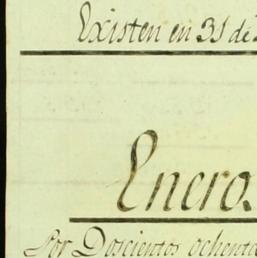 Existen en 31 de
Enero.
Por Doscientos ochenta